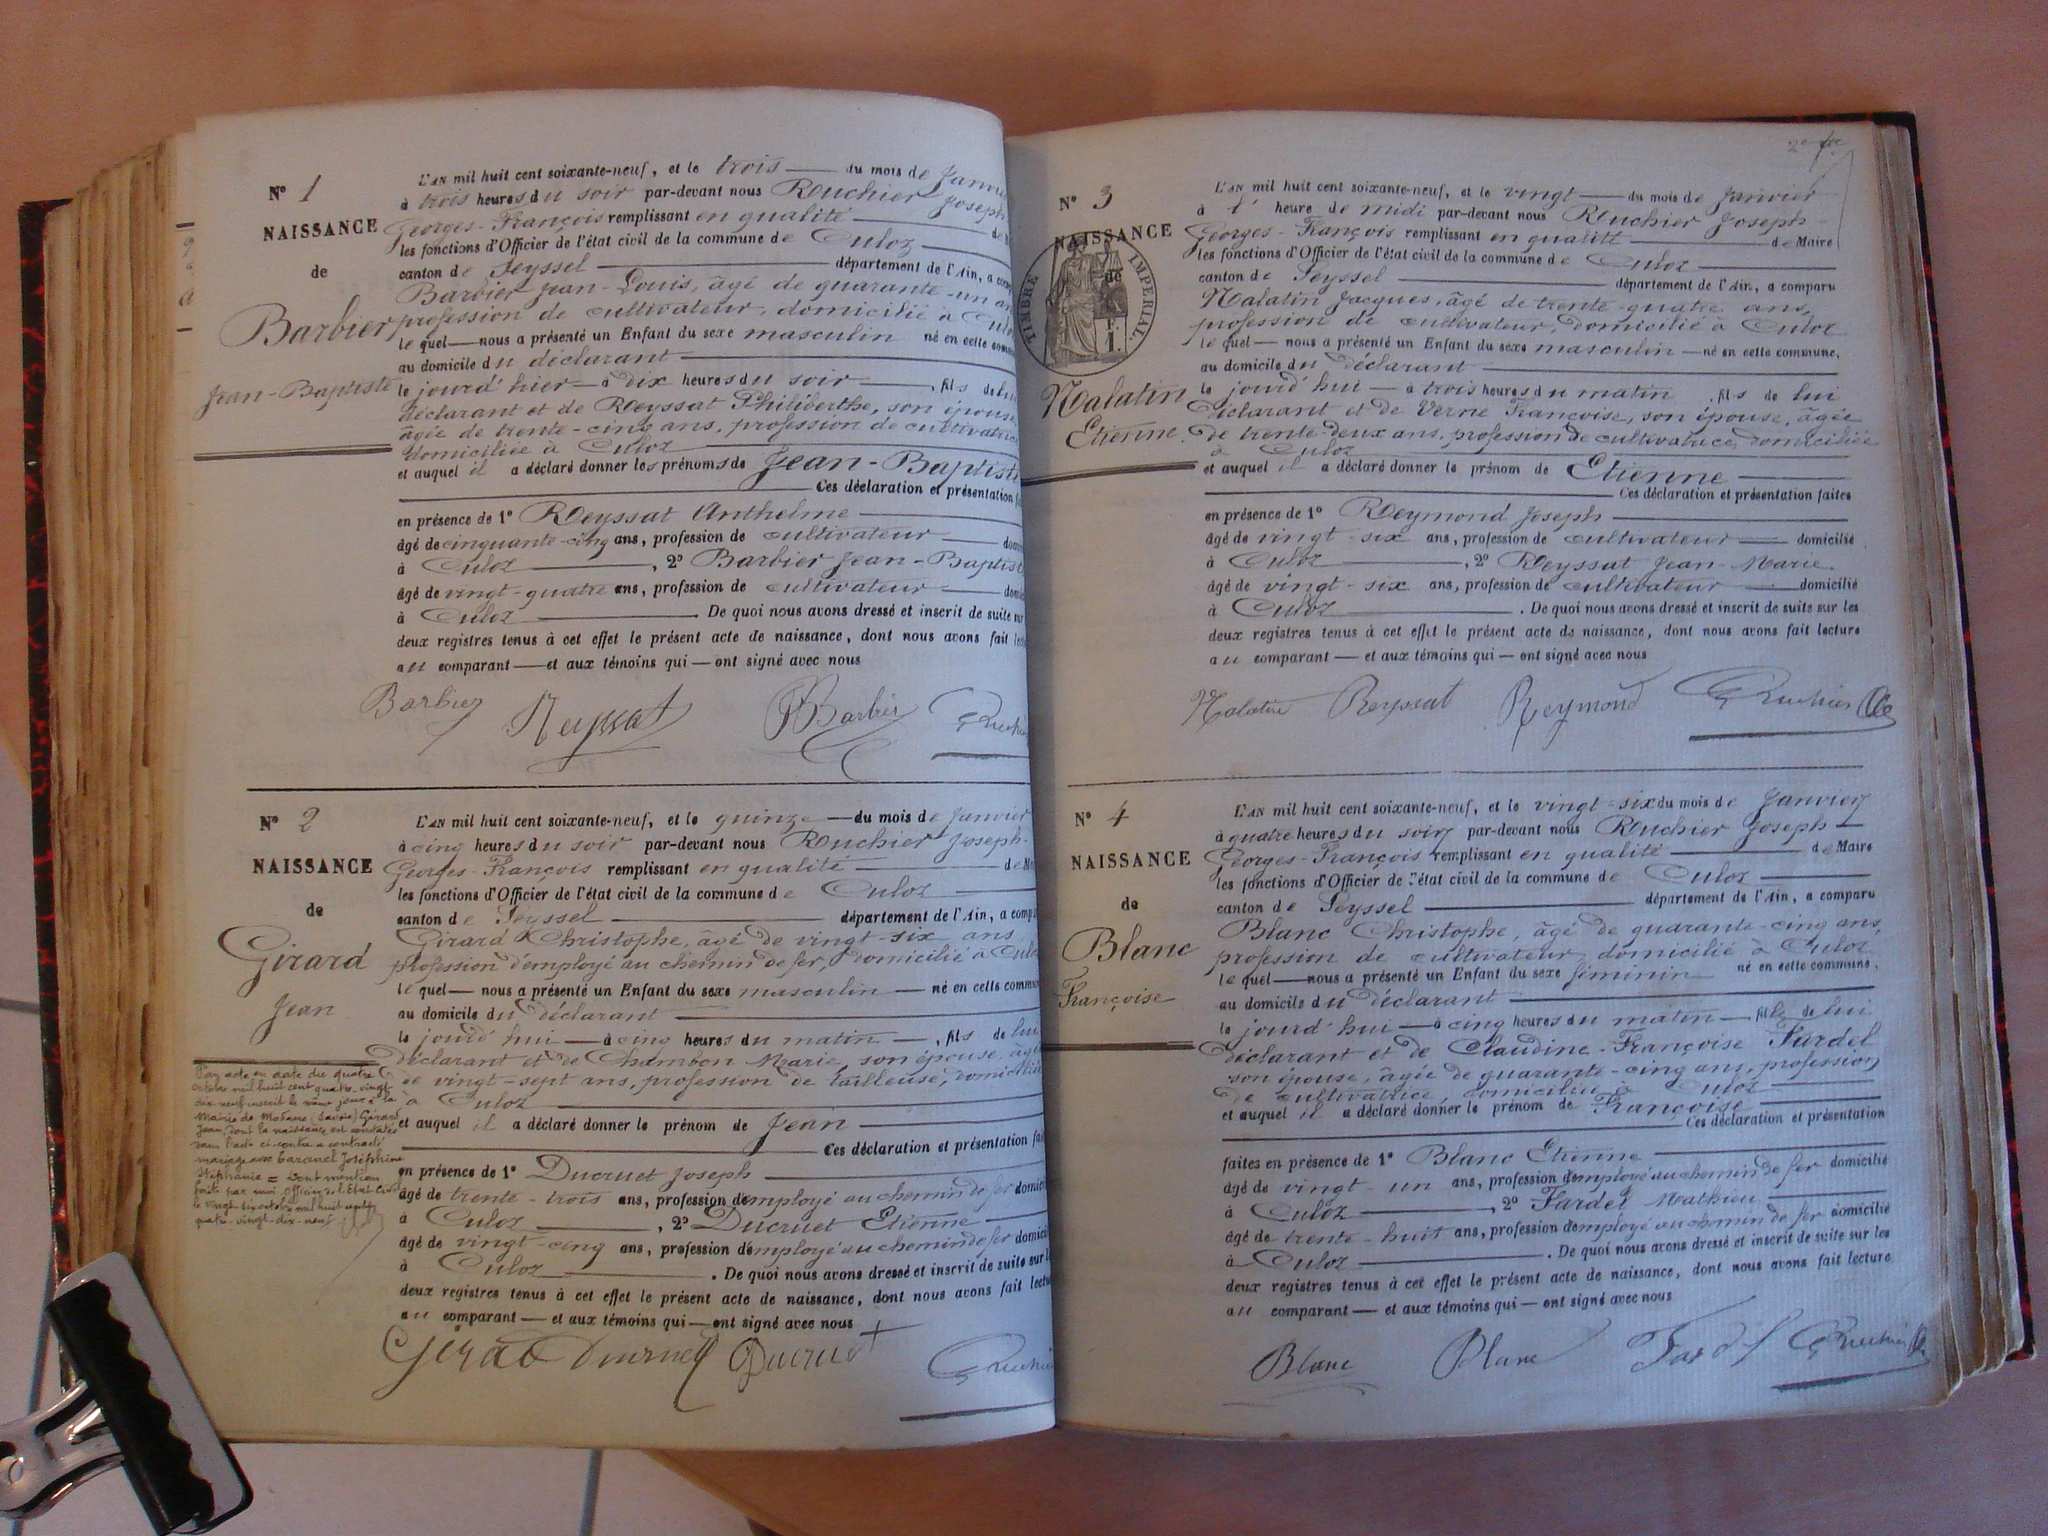 N° 1
NAISSANCE
de
Barbier
Jean-Baptiste
L'AN mil huit cent soixante-neuf, et le trois du mois de
à trois heures du soir par-devant nous Ruchier Joseph
Georges-François remplissant en qualité
les fonctions d'Officier de l'état civil de la commune de Culoz
canton de Seyssel département de l'Ain, a
Barbier Jean-Louis, âgé de quarante-un ans
profession de cultivateur, domicilié à
le quel nous a présenté un Enfant du sexe masculin né en cette
au domicile du déclarant
le jourd'hier à dix heures du soir, fils de lui
déclarant et de Reyssat Philiberthe, son épouse,
âgée de trente-cinq ans, profession de cultivatrice
domiciliée à Culoz
et auquel il a déclaré donner les prénoms de Jean-Baptiste
Ces déclaration et présentation
en présence de 1° Reyssat Anthelme
âgé de cinquante-cinq ans, profession de cultivateur
à Culoz, 2° Barbier Jean-Baptiste
âgé de vingt-quatre ans, profession de cultivateur
à Culoz. De quoi nous avons dressé et inscrit de suite sur
deux registres tenus à cet effet le présent acte de naissance, dont nous avons fait
au comparant et aux témoins qui ont signé avec nous
Barbier Reyssat Barbier Ruchier
N° 2
NAISSANCE
de
Girard
Jean
L'AN mil huit cent soixante-neuf, et le quinze du mois de Janvier
à cinq heures du soir par-devant nous Ruchier Joseph-
Georges-François remplissant en qualité de
les fonctions d'Officier de l'état civil de la commune de Culoz
canton de Seyssel département de l'Ain, a
Girard Christophe, âgé de vingt-six ans,
profession d'employé au chemin de fer, domicilié à Culoz
le quel nous a présenté un Enfant du sexe masculin né en cette
au domicile du déclarant
le jourd'hui à cinq heures du matin, fils de lui
déclarant et de Chambon Marie, son épouse, âgée
de vingt-sept ans, profession de tailleuse, domiciliée
à Culoz
et auquel il a déclaré donner le prénom de Jean
Ces déclaration et présentation
en présence de 1° Ducruet Joseph
âgé de trente-trois ans, profession d'employé au chemin de fer
à Culoz, 2° Ducruet Etienne
âgé de vingt-cinq ans, profession d'employé au chemin de fer
à Culoz. De quoi nous avons dressé et inscrit de suite sur
deux registres tenus à cet effet le présent acte de naissance, dont nous avons fait
au comparant et aux témoins qui ont signé avec nous
Girad Ducruet Ducruet Ruchier
Par acte en date du quatre
octobre mil huit cent quatre-vingt
dix-neuf inscrit le même jour à la
Mairie de Modane (Savoie) Girard
Jean, dont la naissance est constatée
dans l'acte ci-contre a contracté
mariage avec Joséphine
Stéphanie = Dont mention
faite par moi Officier de l'Etat Civil
le vingt six octobre mil huit cent
quatre-vingt-dix-neuf
2e
N° 3
NAISSANCE
de
TIMBRE IMPERIAL
Malatin
Etienne
L'AN mil huit cent soixante-neuf, et le vingt du mois de Janvier
à l' heure de midi par-devant nous Ruchier Joseph-
Georges-François remplissant en qualité de Maire
les fonctions d'Officier de l'état civil de la commune de Culoz
canton de Seyssel département de l'Ain, a comparu
Malatin Jacques, âgé de trente-quatre ans,
profession de cultivateur, domicilié à Culoz
le quel nous a présenté un Enfant du sexe masculin né en cette commune,
au domicile du déclarant
le jourd'hui à trois heures du matin, fils de lui
déclarant et de Verne Françoise, son épouse, âgée
de trente-deux ans, profession de cultivatrice, domiciliée
à Culoz
et auquel il a déclaré donner le prénom de Etienne
Ces déclaration et présentation faites
en présence de 1° Reymond Joseph
âgé de vingt-six ans, profession de cultivateur domicilié
à Culoz, 2° Reyssat Jean-Marie
âgé de vingt-six ans, profession de cultivateur domicilié
à Culoz. De quoi nous avons dressé et inscrit de suite sur les
deux registres tenus à cet effet le présent acte de naissance, dont nous avons fait lecture
au comparant et aux témoins qui ont signé avec nous
Malatin Reyssat Reymond Ruchier
N° 4
NAISSANCE
de
Blanc
Françoise
L'AN mil huit cent soixante-neuf, et le vingt-six du mois de Janvier
à quatre heures du soir par-devant nous Ruchier Joseph
Georges-François remplissant en qualité de Maire
les fonctions d'Officier de l'état civil de la commune de Culoz
canton de Seyssel département de l'Ain, a comparu
Blanc Christophe, âgé de quarante-cinq ans,
profession de cultivateur, domicilié à Culoz
le quel nous a présenté un Enfant du sexe féminin né en cette commune,
au domicile du déclarant
le jourd'hui à cinq heures du matin fille de lui
déclarant et de Claudine-Françoise Fardel
son épouse, âgée de quarante-cinq ans, profession
de cultivatrice, domiciliée à Culoz
et auquel il a déclaré donner le prénom de Françoise
Ces déclaration et présentation
faites en présence de 1° Blanc Etienne
âgé de vingt-un ans, profession d'employé au chemin de fer domicilié
à Culoz, 2° Fardel Mathieu
âgé de trente-huit ans, profession d'employé au chemin de fer domicilié
à Culoz. De quoi nous avons dressé et inscrit de suite sur les
deux registres tenus à cet effet le présent acte de naissance, dont nous avons fait lecture
au comparant et aux témoins qui ont signé avec nous
Blanc Blanc Fardel Ruchier